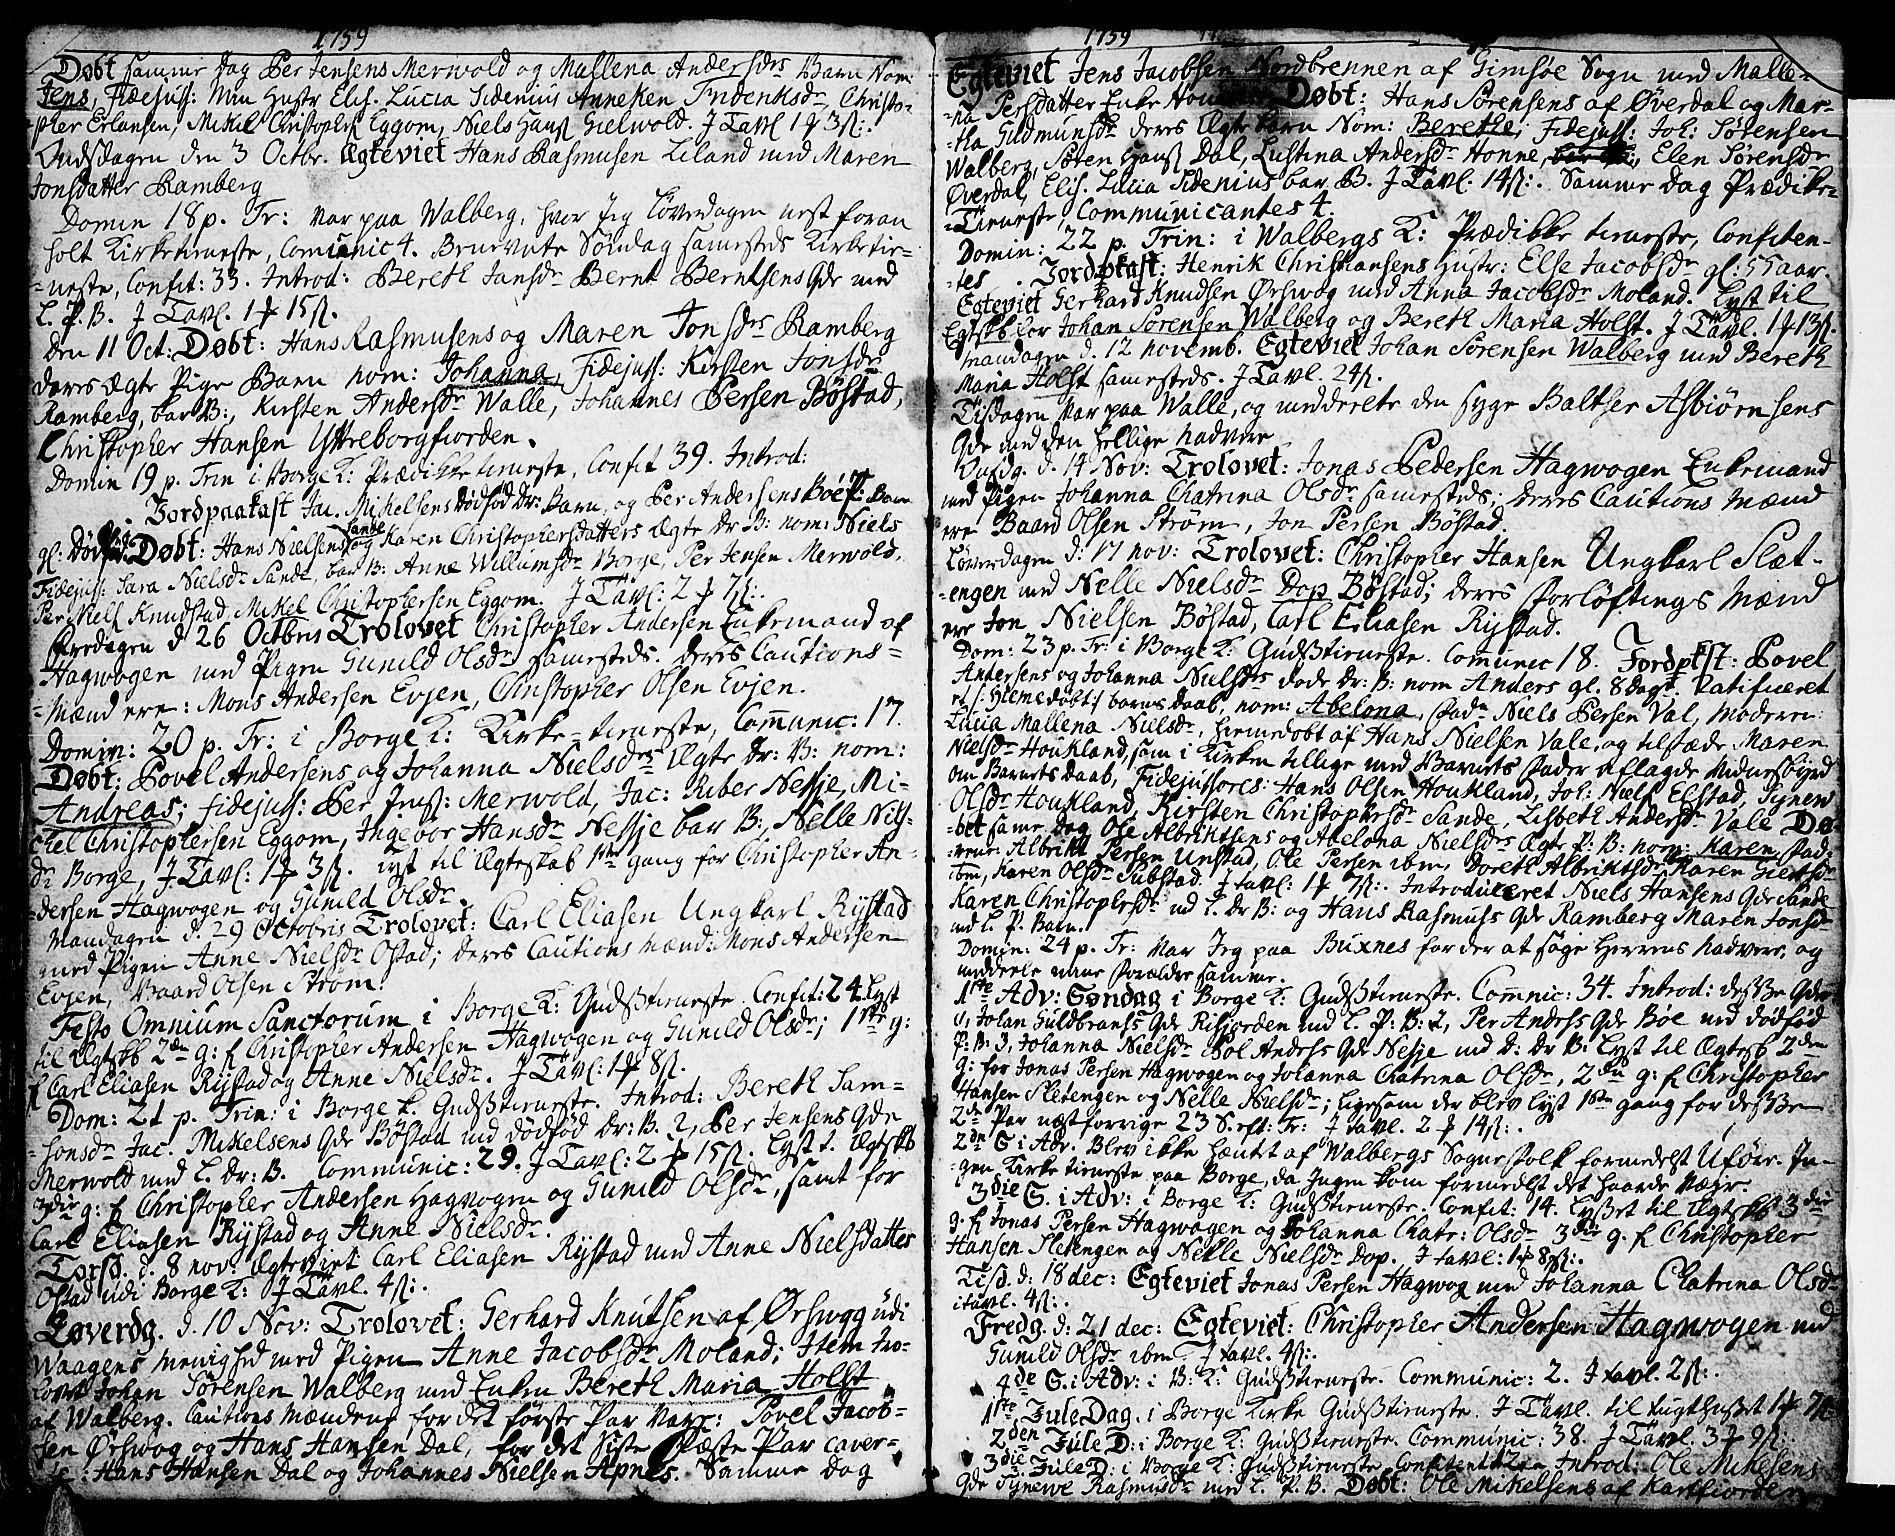 1759
Døbt samme dag Per Jensens Merwold og Mallena Andersdrs Barn Nom:
Jens, Fidejuss: Min Hustr Elis. Lucia Sidenius Anneken Fridenksdr, Christo-
pher Erlansen, Mikel Christophers Eggom, Niels Hanss Gielwold. J Tavl 1 ƒ 3ß:.
Onsdagen den 3 Octbr. Ægteviet Hans Rasmusen Liland med Maren
Jonsdatter Ramberg
Domin 18 p. Tr: Var paa Walberg, hvor Jeg Løverdagen nest foran
holt Kirketieneste, Comunic 4. Benevnte Søndag samesteds Kirketie-
=neste, Confit: 33. Introd: Bereth Jansdr Bernt Berntsens Qde med
L. P. B. J Tavl. 1 ƒ 15ß.
Den 11 Oct: Døbt: Hans Rasmusens og Maren Jonsdrs Ramberg
deres Ægte Pige Barn nom: Johanna, Fidejuss: Kirsten Jonsdr
Ramberg, bar B:, Kirsten Andersdr Walle, Johannes Persen Bøstad,
Christopher Hansen Yttreborgfiorden.
Domin 19 p. Trin i Borge K: Prædikketieneste, Confit 39. Introd:
Jordpaakast Jac. Mikelsens dødfød Dr: Barn, og Per Andersens Bøe P: Barn
gl: Dødfød Døbt: Hans Nielsens Sande og Karen Christophersdatters Ægte Dr B: nom: Niels
Fidejuss: Sara Nielsdr Sande, bar B: Anne Willumsdr Borge, Per Jensen Merwold,
Per Niels Knudstad, Mikel Christophersen Eggom. J Tavl: 2 ƒ 7ß:.
Fredagen d 26 Octbris Trolovet Christopher Andersen Enkemand af
Hagwogen med Pigen Gunild Olsdr samesteds. deres Cautions-
-Mænd ere: Mons Andersen Evjen, Christopher Olsen Evjen.
Domin: 20 p. Tr: i Borge K: Kirke-tieneste, Communic: 17.
Døbt: Povel Andersens og Johanna Nielsdrs Ægte Dr: B: nom:
Andreas; fidejuss: Per Jenss: Merwold, Jac: Riber Nesje, Mi-
chel Christophersen Eggom, Ingebor Hansdr Nesje bar B:, Nelle Nils-
dr Borge, J Tavl: 1 ƒ 3ß. Lyst til Ægteskab 1ste gang for Christopher An-
dersen Hagwogen og Gunild Olsdr.
Mandagen d. 29 Octobris Trolovet: Carl Eliasen Ungkarl Rystad
med Pigen Anne Nielsdr Ostad; deres Cautions Mænd: Mons Andersen
Evjen, Baard Olsen Strøm.
Festo Omnium Sanctorum i Borge K: Gudsstieneste. Confit: 24. Lyst
til Ægtskb 2den g: f Christopher Andersen Hagwogen og Gunild Olsdr; 1ste g:
f Carl Eliasen Rystad og Anne Nielsdr. J Tavl: 1 ƒ 8ß.
Dom: 21 p. Trin: i Borge k. Gudsstieneste. Introd: Bereth Sam-
-sonsdr Jac. Mikelsens Qde Bøstad med dødfød dr: B. 2, Per Jensens Qde
Merwold med L. dr: B. Communic: 29. J Tavl: 2 ƒ 15ß. Lyst t. Ægtskb
3die g: f Christopher Andersen Hagwogen og Gunild Olsdr, samt for
Carl Eliasen Rystad og Anne Nielsdr.
Torsd. d. 8 nov. Ægteviet Carl Eliasen Rystad med Anne Nielsdatter
Ostad udi Borge K: J Tavl. 4ß:.
Løverdg. d. 10 Nov: Trolovet: Gerhard Knutsen af Ørswog udi
Waagens menighed med Pigen Anne Jacobsdr Moland; Item Tro-
lovet Johan Sørensen Walberg med Enken Bereth Maria Holst
af Walberg. Cautions Mændene for det første Par Vare: Povel Jacob-
sen Ørswog og Hans Hansen Dal, for det Siste Fæste Par caver-
te: Hans Hansen Dal og Johannes Nielsen Apnes. Samme dag
1759
Egteviet Jens Jacobsen Nordbrennen af Gimsøe Sogn med Malle-
-na Persdatter Enke Døbt: Hans Sørensens af Øverdal og Mar-
-tha Gudmunsdr deres Ægte barn Nom: Berethe, Fidejuss: Joh: Sørensen
Walberg, Søren Hanss Dal, Lustina Andersdr Honne, Elen Sørensdr
Øverdal, Elis. Lucia Sidenius bar B. J Tavl. 14ß:. Samme dag Prædike-
-Tieneste, Communicantes 4.
Domin: 22 p. Trin: i Walbergs K: Prædikke tieneste, Confiten-
-tes . Jordpkast: Henrik Christiansens Hustr: Else Jacobsdr gl: 55 aar.
Egteviet Gerhard Knudsen Ørswog med Anna Jacobsdr Moland. Lyst til
Egtskb for Johan Sørensen Walberg og Bereth Maria Holst. J Tavl. 1 ƒ 13ß.
Mandagen d. 12 novemb. Egteviet Johan Sørensen Walberg med Bereth
Maria Holst samesteds. J Tavl. 24ß.
Tisdagen Var paa Walle, og meddeelte den syge Baltser Asbiørnsens
Qde med den hellige Nadvere
Onsdg. d. 14 Nov: Trolovet: Jonas Pedersen Hagwogen Enkemand
med Pigen Johanna Chatrina Olsdr samesteds; deres Cautions Mænd
ere Baard Olsen Strøm, Jon Persen Bøstad.
Løverdagen d: 17 nov: Trolovet: Christopher Hansen Ungkarl Slet-
-engen med Nelle Nielsdr Dop Bøstad; deres Forløftings Mænd
ere Jon Nielsen Bøstad, Carl Eliasen Rystad.
Dom: 23 p. Tr: i Borge K: Gudsstieneste. Comunic 18. Jordpkst: Povel
Andersens og Johanna Nielsdrs døde Dr: B: nom Anders gl. 8 dage. Ratificeret
et /: Hiemedøbt :/ barns daab, nom: Abelona, Fadr. Niels Persen Val, Moderen:
Lucia Mallena Nielsdr, hiemedøbt af Hans Nielsen Vale, og tilstæde Maren
Nielsdr Houkland, som i Kirken tillige med Barnets Fader aflagde Vidnesbyrd
om Barnets Daab, Fidejussores: Hans Olsen Houkland, Joh: Niels Elstad, Synew
Olsdr Houkland, Kirsten Christophersdr Sande, Lisbeth Andersdr Vale Dø-
-bet same dag Ole Albriktsens og Abelona Nielsdrs Ægte P: B: nom: Karen, Fad-
-rene: Albrikt Persen Unstad, Ole Persen ibm, Doreth Albriktsdr Karen Giertsdr
ibm, Karen Olsdr Tubstad. J tavl: 1 ƒ 7ß:. Introduceret Niels Hansens Qde Sande
Karen Christophersdr md L. Dr B: og Hans Rasmuss Qde Ramberg Maren Jonsdr
md L. P. Barn.
Domin: 24 p. Tr: Var Jeg paa Buxnes for der at søge Herrens Nadvere, og
meddeele mine Forældre samme.
1ste Adv: Søndag i Borge K: Gudsstieneste. Comnic: 34. Introd: disse Qder
Johan Guldbranss Qde Risfiorden md L. P: B: 2, Per Andrss Qde Bøe md dødfød
P: B: 3, Johanna Nielsdr Pol Andrss Qde Nesje md D: Dr B: Lyst til Ægtesk 2den
g: for Jonas Persen Hagwogen og Johanna Chatrina Olsdr, 2den g: f Christopher
Hansen Sletengen og Nelle Nielsdr; ligesom der blev Lyst 1ste gang for disse
2de Par næstforrige 23 S. eft: Tr: J tavl. 2 ƒ 14ß:.
2den S i Adv. Blev ikke hæntet af Walbergs Sogne folk formedelst Uføre. In-
gen Kirke tieneste paa Borge, da Ingen kom formedelst det haarde Vejr.
3die S. i Adv: i Borge K: Gudsstieneste. Confit: 14. Lysst til Ægtskb 3die
g. f Jonas Persen Hagwogen og Johanna Chatr: Olsdr 3die g: f Christopher
Hansen Sletengen og Nelle Nielsdr Dop. J tavl: 1 ƒ 8ß:.
Tisd. d: 18 dec: Egteviet Jonas Persen Hagwog med Johanna Chatrina Olsdr
i tavl. 4ß:.
Fredg. d: 21 dec: Egteviet: Christopher Andersen Hagwogen md
Gunild Olsdr ibm J tavl. 4ß:.
4de S. i Adv: i B: K: Gudsstieneste. Communic: 2. J tavl. 2ß:.
1ste Jule Dag. i Borge Kirke Gudsstieneste. J Tavl. til tugthuset 1 ƒ 7ß
2den Jule D: i Borge K: Gudsstieneste. Communic: 38. J Tavl. 3 ƒ 9ß:.
3die Jule D: i Borge K: Gudsstieneste, Confitent 12. Introd: Ole Mikelsens
Qde Synewe Rasmusdr med L. P. B. Døbt: Ole Mikelsens af Kartfiorden